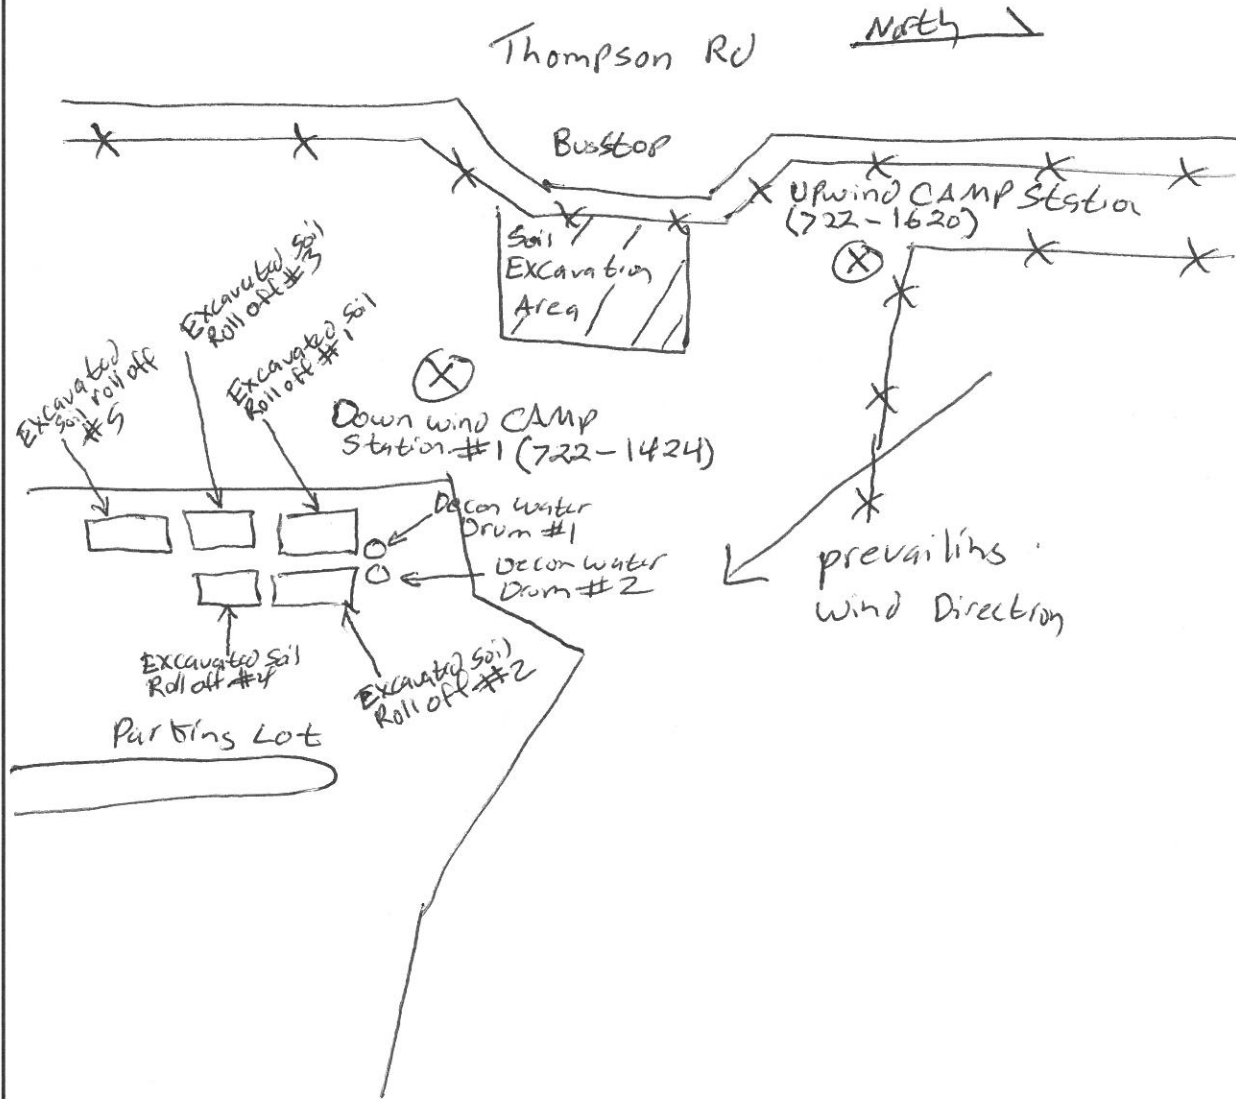 North
Thompson Rd
Busstop
UPwind CAMP Station
(722-1620)
Soil
Excavation
Area
Excavated Soil
Roll off #3
Excavated Soil
Roll off #1
Excavated
Soil roll off
#5
Down wind CAMP
Station #1 (722-1424)
Decon Water
Drum #1
Decon Water
Drum #2
prevailing
wind Direction
Excavated Soil
Roll off #4
Excavated Soil
Roll off #2
Parking Lot